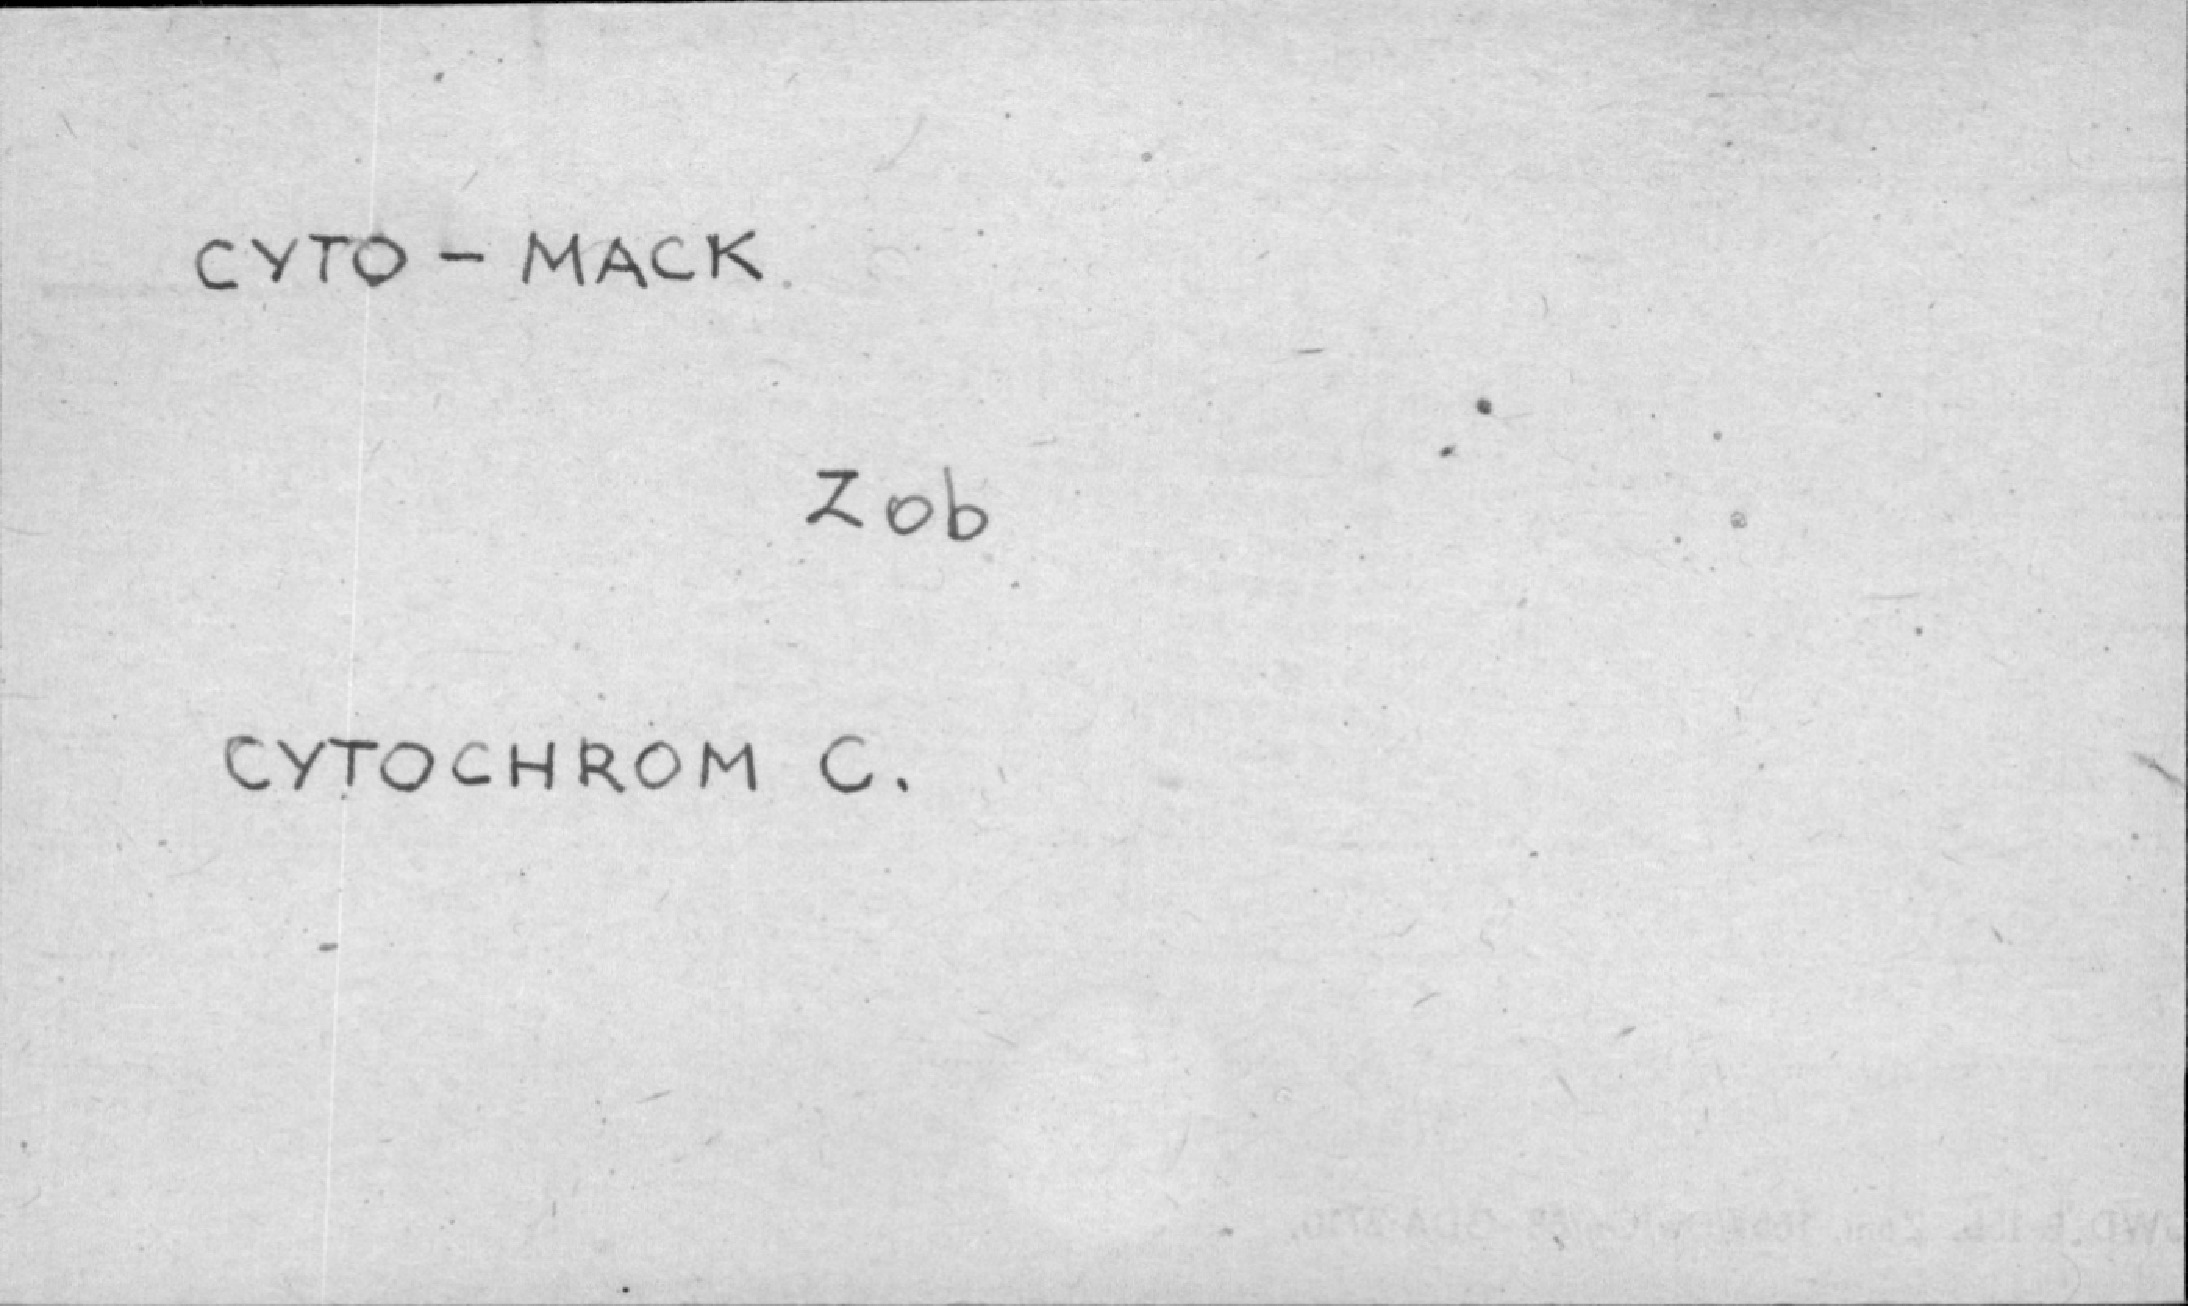 CYTO - MACK
Zob
CYTOCHROM C.